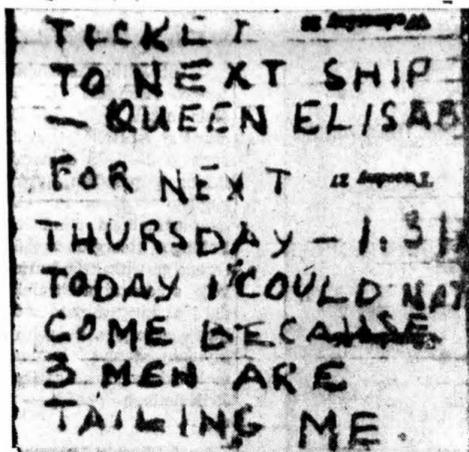 TICKET
TO NEXT SHIP
— QUEEN ELISAB
FOR NEXT
THURSDAY – 1.31
TODAY I COULD NOT
COME BECAUSE
3 MEN ARE
TAILING ME.